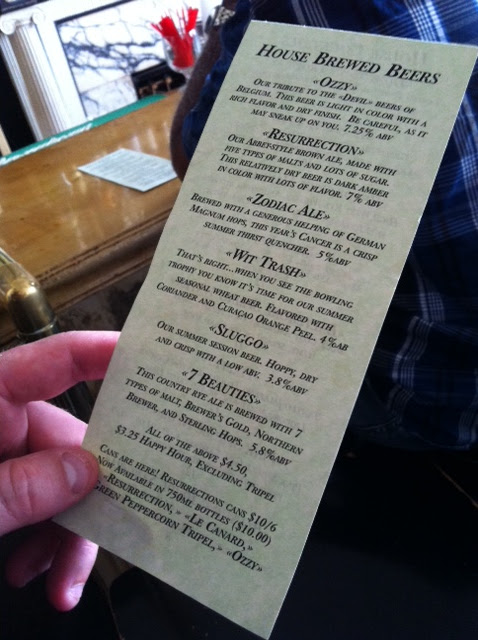 House Brewed Beers
«Ozzy»
Our tribute to the «Devil» beers of
Belgium. This beer is light in color with a
rich flavor and dry finish. Be careful, as it
may sneak up on you. 7.25% abv
«Resurrection»
Our Abbey-style brown ale, made with
five types of malts and lots of sugar.
This relatively dry beer is dark amber
in color with lots of flavor. 7% abv
«Zodiac Ale»
Brewed with a generous helping of German
Magnum hops, this year's Cancer is a crisp
summer thirst quencher. 5%abv
«Wit Trash»
That's right...when you see the bowling
trophy you know it's time for our summer
seasonal wheat beer. Flavored with
Coriander and Curaçao Orange Peel. 4%ab
«Sluggo»
Our summer session beer. Hoppy, dry
and crisp with a low abv. 3.8%abv
«7 Beauties»
This country rye ale is brewed with 7
types of malt, Brewer's Gold, Northern
Brewer, and Sterling Hops. 5.8%abv
All of the above $4.50,
$3.25 Happy Hour, Excluding Tripel
Cans are here! Resurrections cans $10/6
Now Available in 750ml bottles ($10.00)
«Resurrection,» «Le Canard,»
Green Peppercorn Tripel,» «Ozzy»